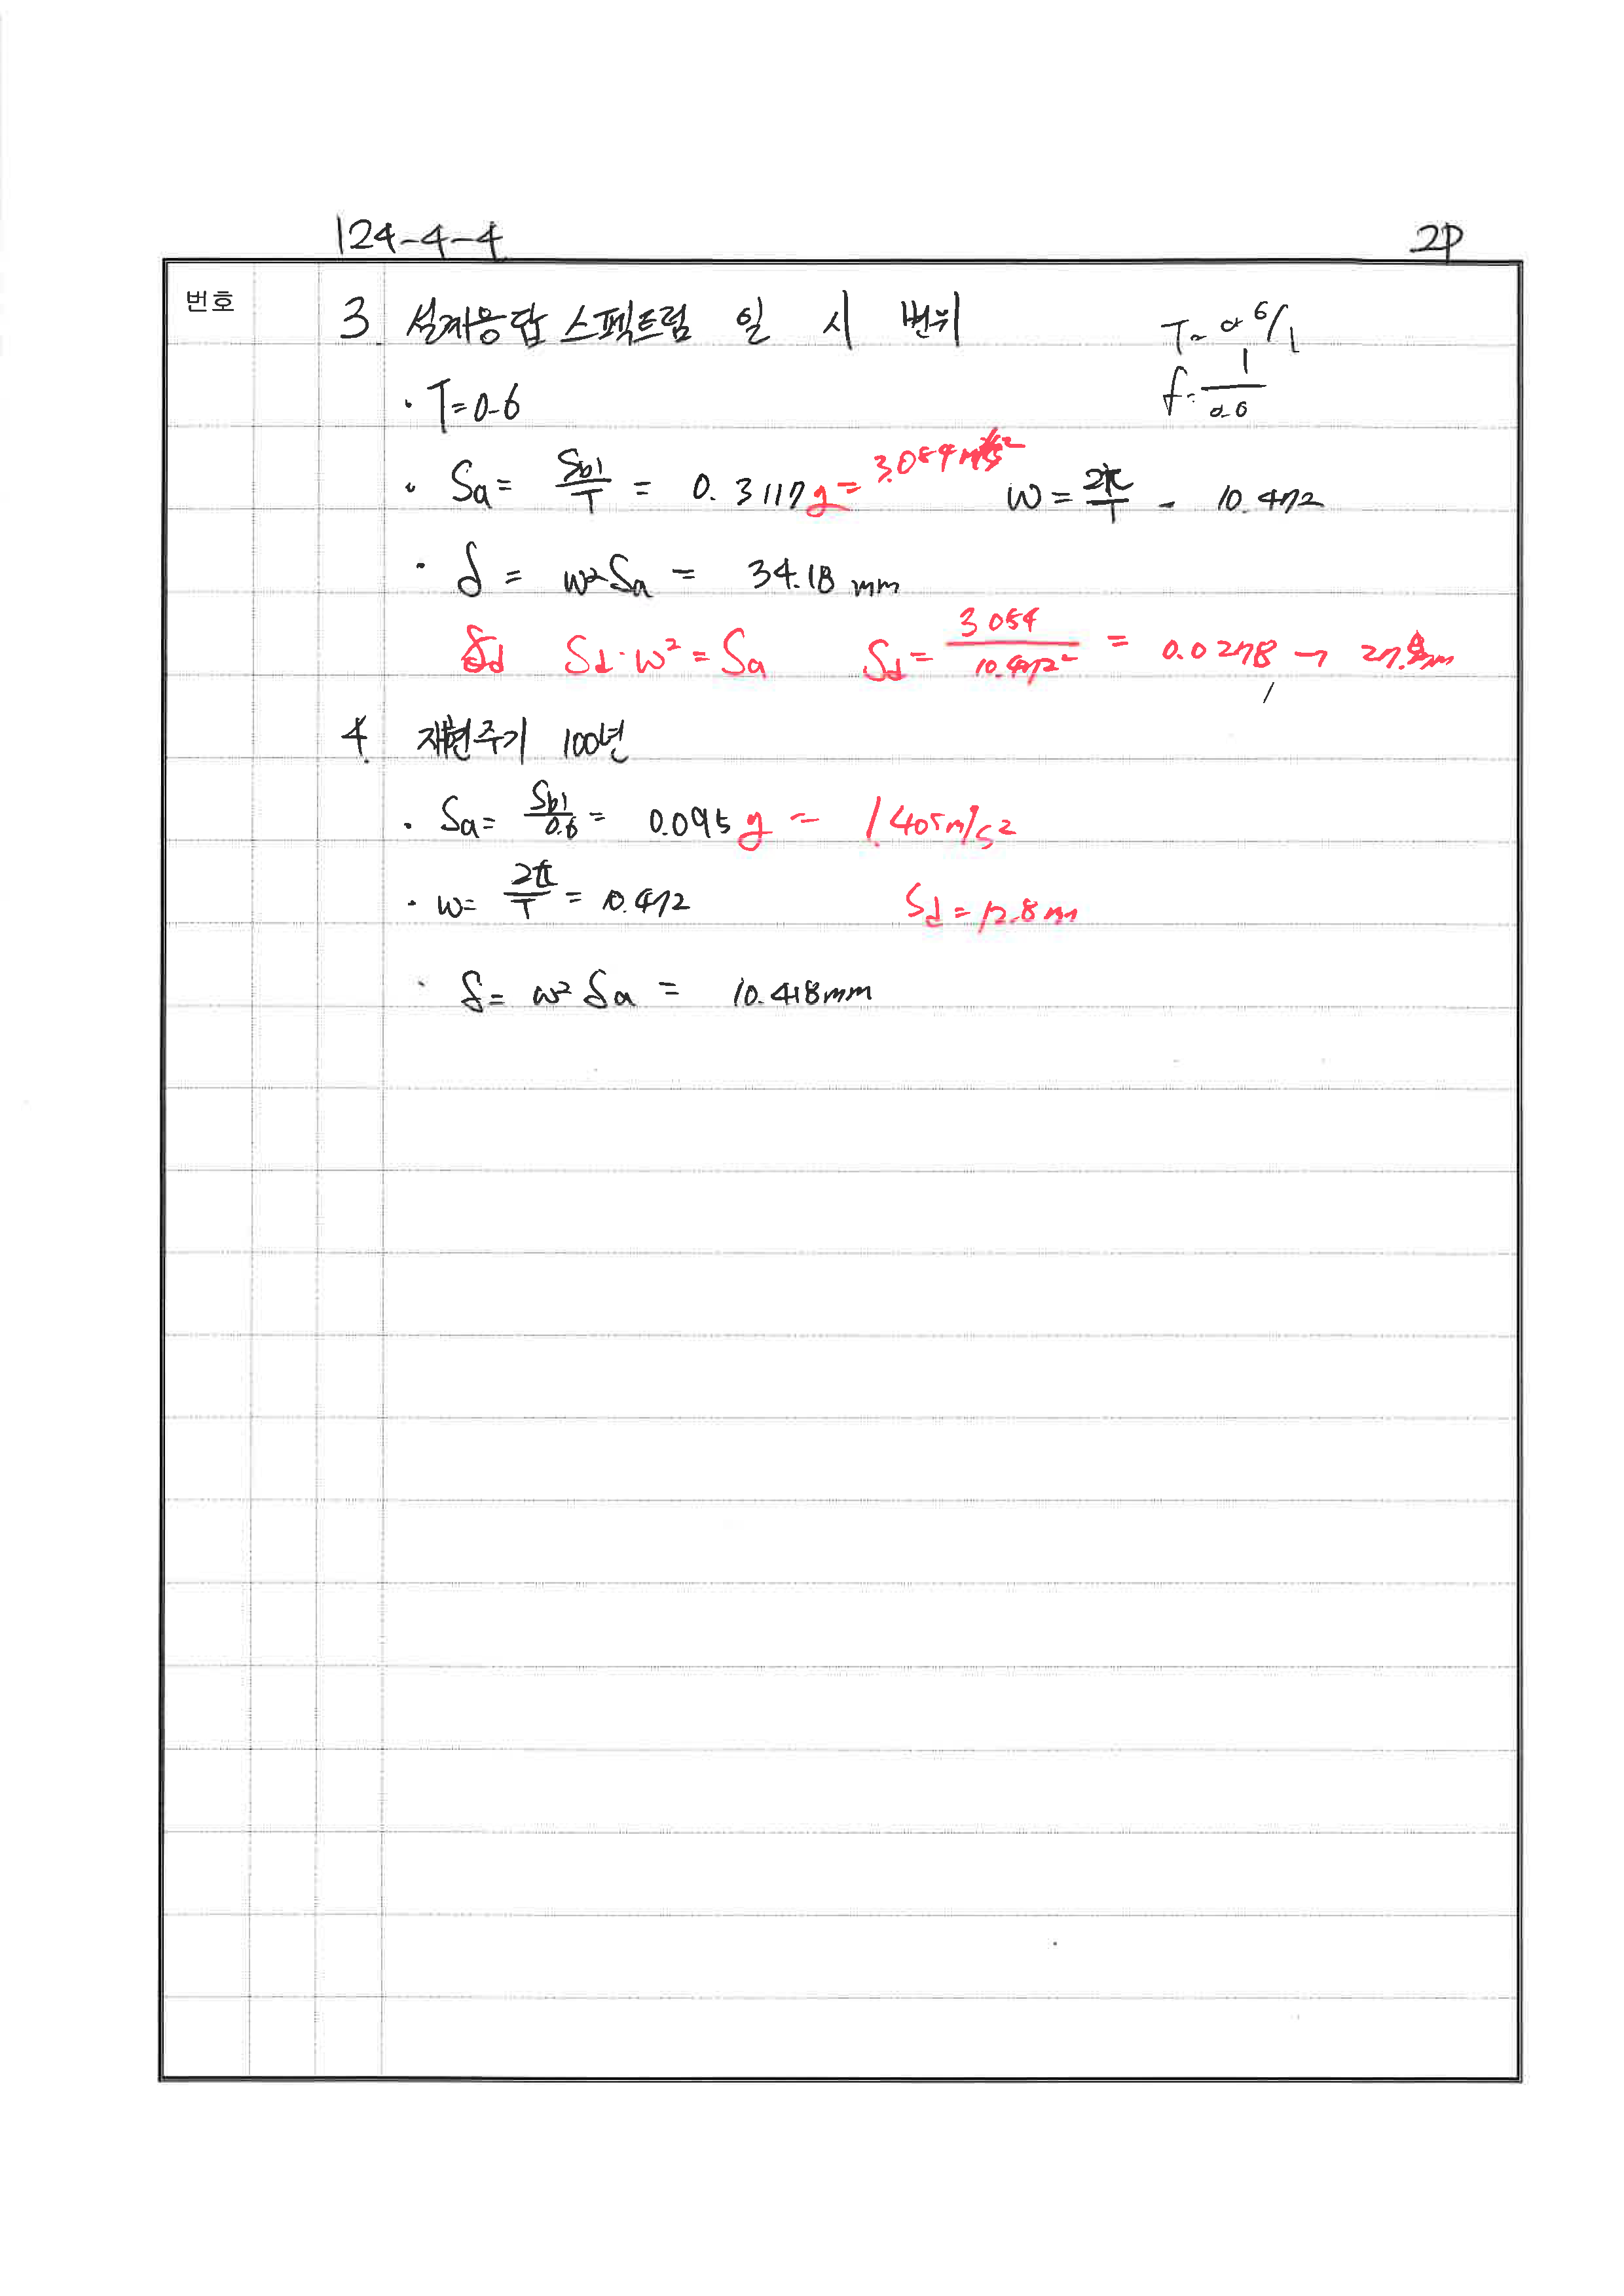 124-4-4 2P
번호
3. 설계응답 스펙트럼 일 시 변위
T= 0.6/1
f= 1/0.6
· T=0.6
· Sa= SD1/T = 0.3117g = 3.054 m/s² w= 2π/T = 10.472
· δ = w²Sa = 34.18 mm
Sd Sd·w² = Sa Sd = 3.054/10.472² = 0.0278 → 27.8mm
4. 재현주기 100년
· Sa= SD1/0.6 = 0.095g = 1.405m/s²
· w= 2π/T = 10.472 Sd = 12.8m
· δ= w² Sa = 10.418mm